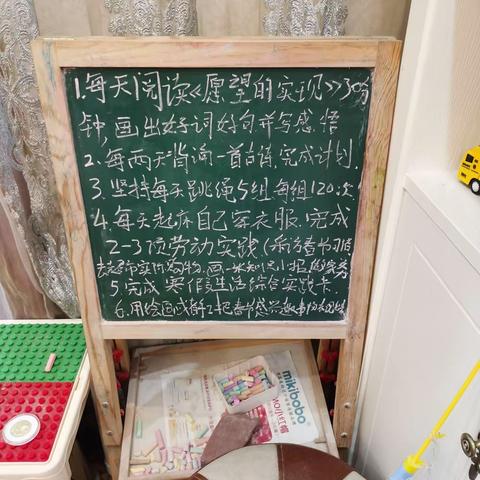 1.每天阅读《愿望的实现》30分
钟,画出好词好句,并写感悟
2.每两天背诵一首古诗,完成计划
3.坚持每天跳绳5组,每组120次
4.每天起床自己穿衣服.完成
2-3项劳动实践
去超市实际购物.画一张知识小报
5.完成寒假生活综合实践卡
6.用绘画或
mikibobo
小红帽